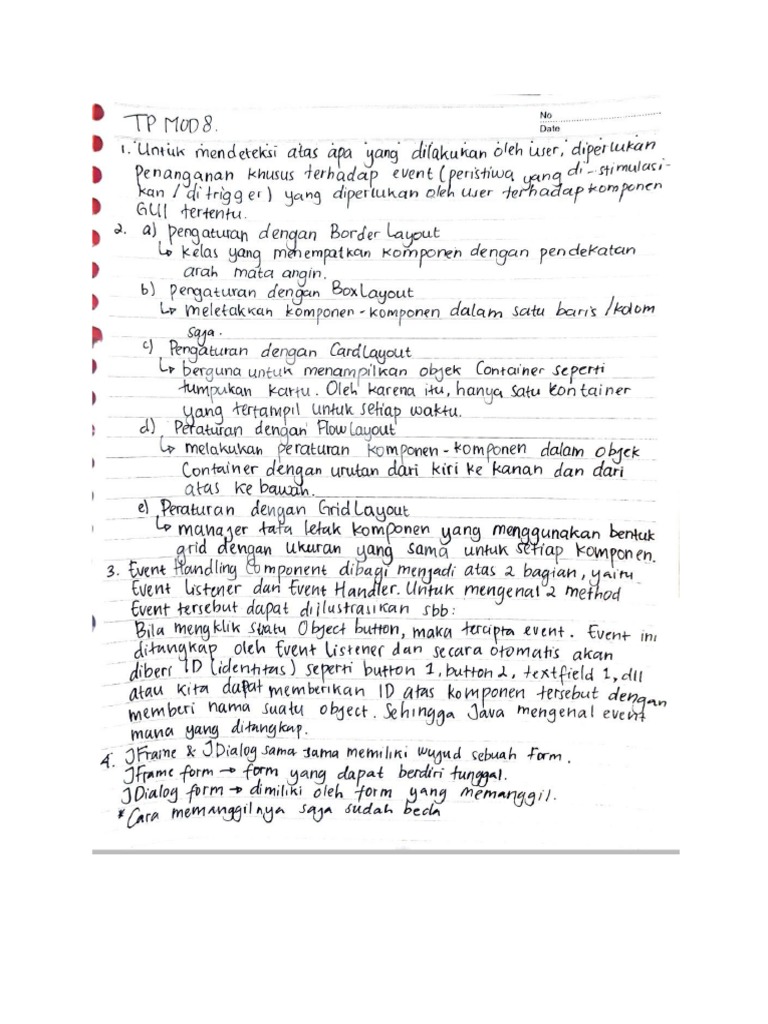 No
Date
TP MOD 8.
1. Untuk mendeteksi atas apa yang dilakukan oleh user, diperlukan
Penanganan khusus terhadap event (peristiwa yang di-stimulasi-
kan / di trigger) yang diperlukan oleh user terhadap komponen
GUI tertentu.
2. a) pengaturan dengan Border Layout
↳ kelas yang menempatkan komponen dengan pendekatan
arah mata angin.
b) pengaturan dengan BoxLayout
↳ meletakkan komponen-komponen dalam satu baris /kolom
saja.
c) Pengaturan dengan CardLayout
↳ berguna untuk menampilkan objek Container seperti
tumpukan kartu. Oleh karena itu, hanya satu kontainer
yang tertampil untuk setiap waktu.
d) Peraturan dengan FlowLayout
↳ melakukan peraturan komponen-komponen dalam objek
Container dengan urutan dari kiri ke kanan dan dari
atas ke bawah.
e) Peraturan dengan GridLayout
↳ manager tata letak komponen yang menggunakan bentuk
grid dengan ukuran yang sama untuk setiap komponen.
3. Event Handling Component dibagi menjadi atas 2 bagian, yaitu
Event Listener dan Event Handler. Untuk mengenal 2 method
Event tersebut dapat diilustrasikan sbb:
Bila mengklik suatu Object button, maka tercipta event. Event ini
ditangkap oleh Event Listener dan secara otomatis akan
diberi ID (identitas) seperti button 1, button 2, textfield 1, dll
atau kita dapat memberikan ID atas komponen tersebut dengan
memberi nama suatu object. Sehingga Java mengenal event
mana yang ditangkap.
4. JFrame & JDialog sama sama memiliki wujud sebuah form.
JFrame form → form yang dapat berdiri tunggal.
JDialog form → dimiliki oleh form yang memanggil.
* Cara memanggilnya saja sudah beda